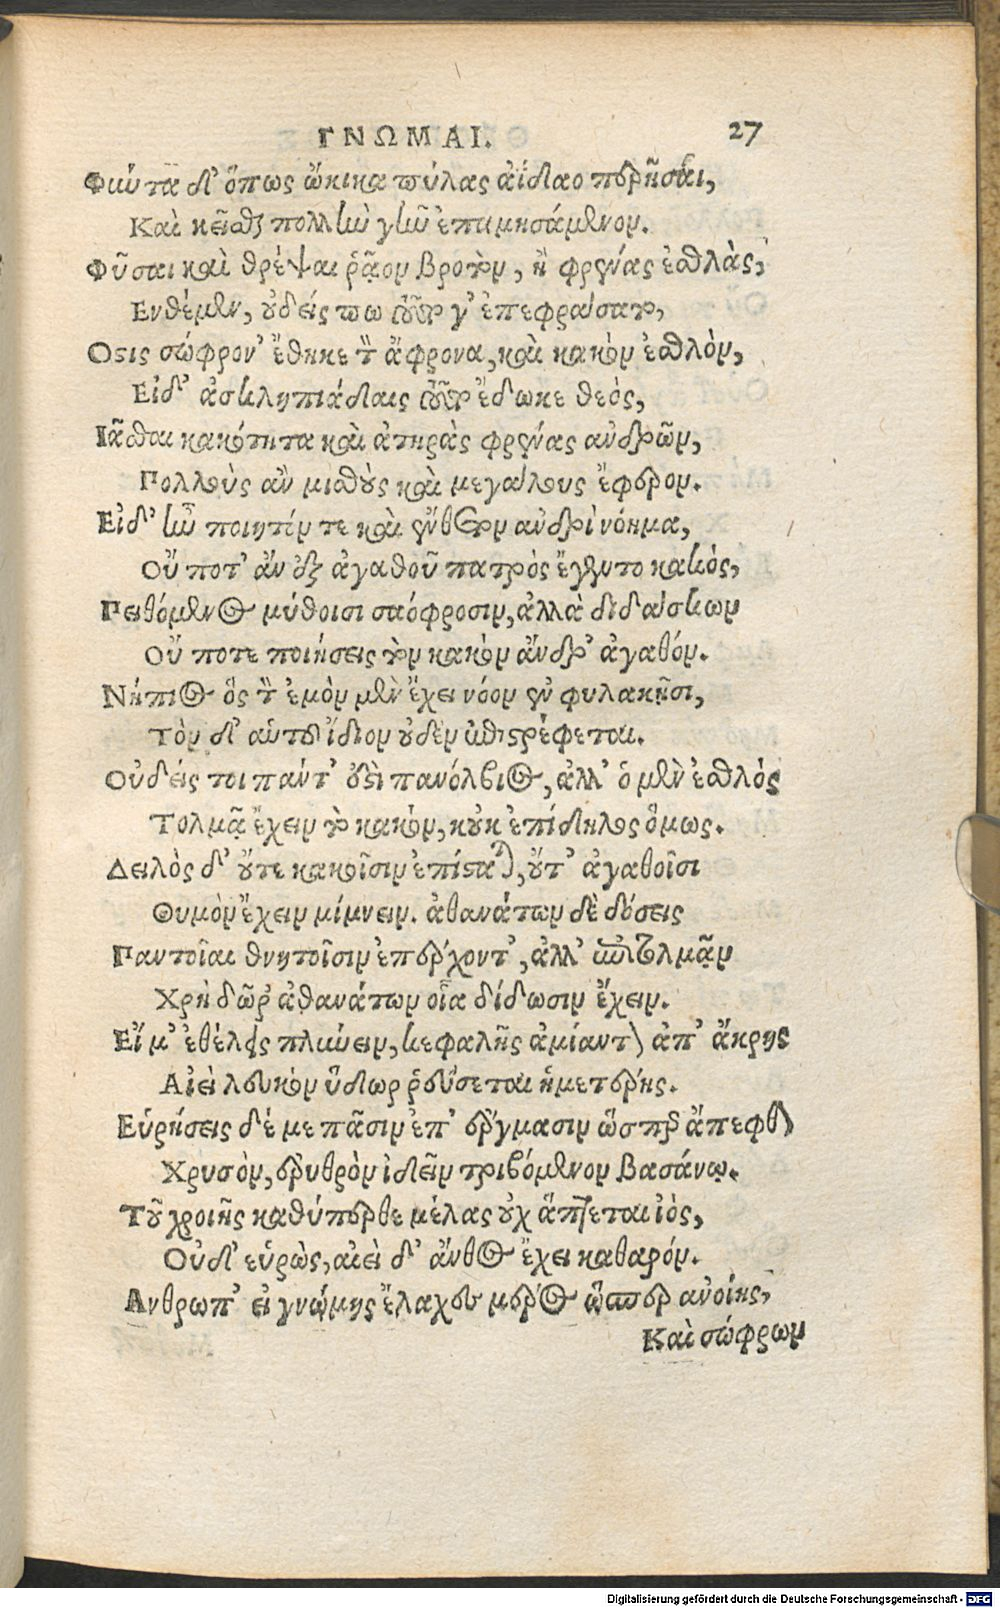 ΓΝΩΜΑΙ. 27
Φύντα δ' ὅπως ὤκιστα πύλας ἀΐδαο περῆσαι,
Καὶ κεῖσθαι πολλὴν γῆν ἐπαμησάμενον.
Φῦσαι καὶ θρέψαι ῥᾷον βροτὸν, ἢ φρένας ἐσθλὰς,
Ενθέμεν, οὐδείς πω τοῦτο γ' ἐπεφράσατο,
Οστις σώφρον' ἔθηκε τὸν ἄφρονα, καὶ κακὸν ἐσθλὸν,
Εἰδ' ἀσκληπιάδαις τοῦτο ἔδωκε θεὸς,
Ιᾶσθαι κακότητα καὶ ἀτηρὰς φρένας ἀνδρῶν,
Πολλοὺς ἂν μισθοὺς καὶ μεγάλους ἔφερον.
Εἰδ' ἦν ποιητόν τε καὶ ἔνθετον ἀνδρὶ νόημα,
Οὔ ποτ' ἂν ἐξ ἀγαθοῦ πατρὸς ἔγεντο κακὸς,
Πειθόμενος μύθοισι σαόφροσιν, ἀλλὰ διδάσκων
Οὔ ποτε ποιήσεις τὸν κακὸν ἄνδρ' ἀγαθόν.
Νήπιος ὃς τὸν ἐμὸν μὲν ἔχει νόον ἐν φυλακῇσι,
Τὸν δ' αὑτοῦ ἴδιον οὐδὲν ἐπιστρέφεται.
Οὐδείς τοι πάντ' ἐστὶ πανόλβιος, ἀλλ' ὁ μὲν ἐσθλὸς
Τολμᾷ ἔχειν τὸ κακόν, κοὐκ ἐπίδηλος ὅμως.
Δειλὸς δ' οὔτε κακοῖσιν ἐπίσταται, οὔτ' ἀγαθοῖσι
Θυμὸν ἔχειν μίμνειν. ἀθανάτων δὲ δόσεις
Παντοῖαι θνητοῖσιν ἐπέρχοντ', ἀλλ' ἐπιτολμᾷν
Χρὴ δῶρ' ἀθανάτων οἷα δίδωσιν ἔχειν.
Εἴ μ' ἐθέλεις πλύνειν, κεφαλῆς ἀμίαντον ἀπ' ἄκρης
Αἰεὶ λευκὸν ὕδωρ ῥεύσεται ἡμετέρης.
Εὑρήσεις δέ με πᾶσιν ἐπ' ἔργμασιν ὥσπερ ἄπεφθον
Χρυσὸν, ἐρυθρὸν ἰδεῖν τριβόμενον βασάνῳ.
Τοῦ χροιῆς καθύπερθε μέλας οὐχ ἅπτεται ἰὸς,
Οὐδ' εὑρὼς, αἰεὶ δ' ἄνθος ἔχει καθαρόν.
Ανθρωπ' εἰ γνώμης ἔλαχες μέρος ὥσπερ ἀνοίης,
Καὶ σώφρων
Digitalisierung gefördert durch die Deutsche Forschungsgemeinschaft - DFG